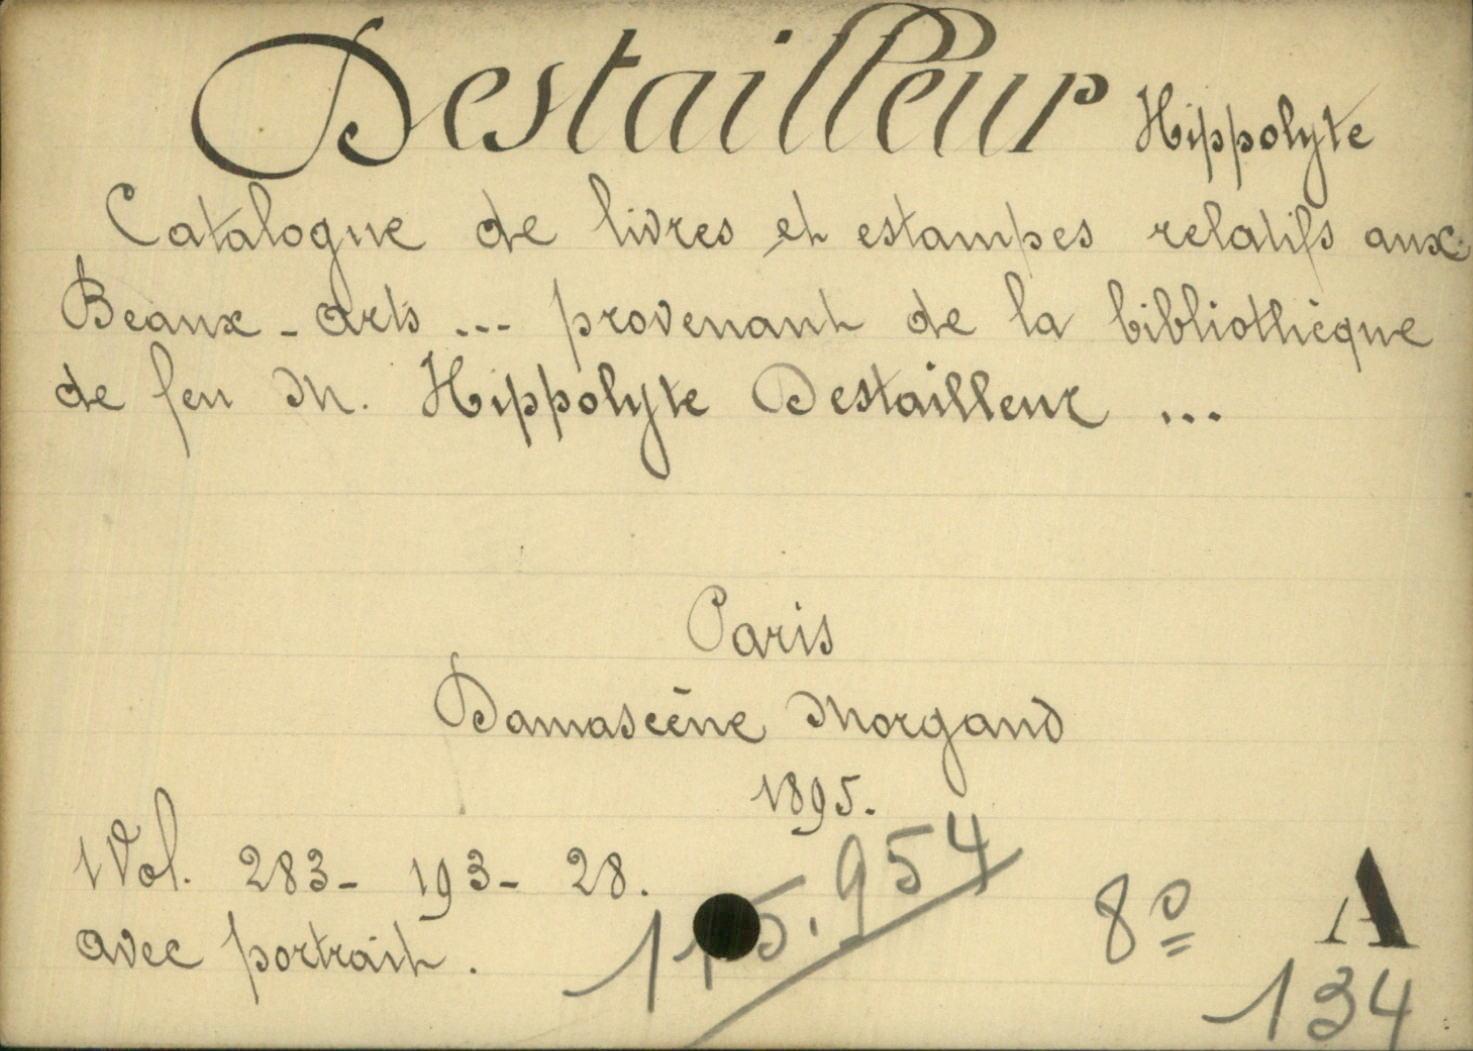 Destailleur Hippolyte
Catalogue de livres et estampes relatifs aux
Beaux-arts ... provenant de la bibliothèque
de feu M. Hippolyte Destailleur ...
Paris
Damascène Morgand
1895.
1 Vol. 283- 193- 28.
avec portrait.
115.954
8º
A
134